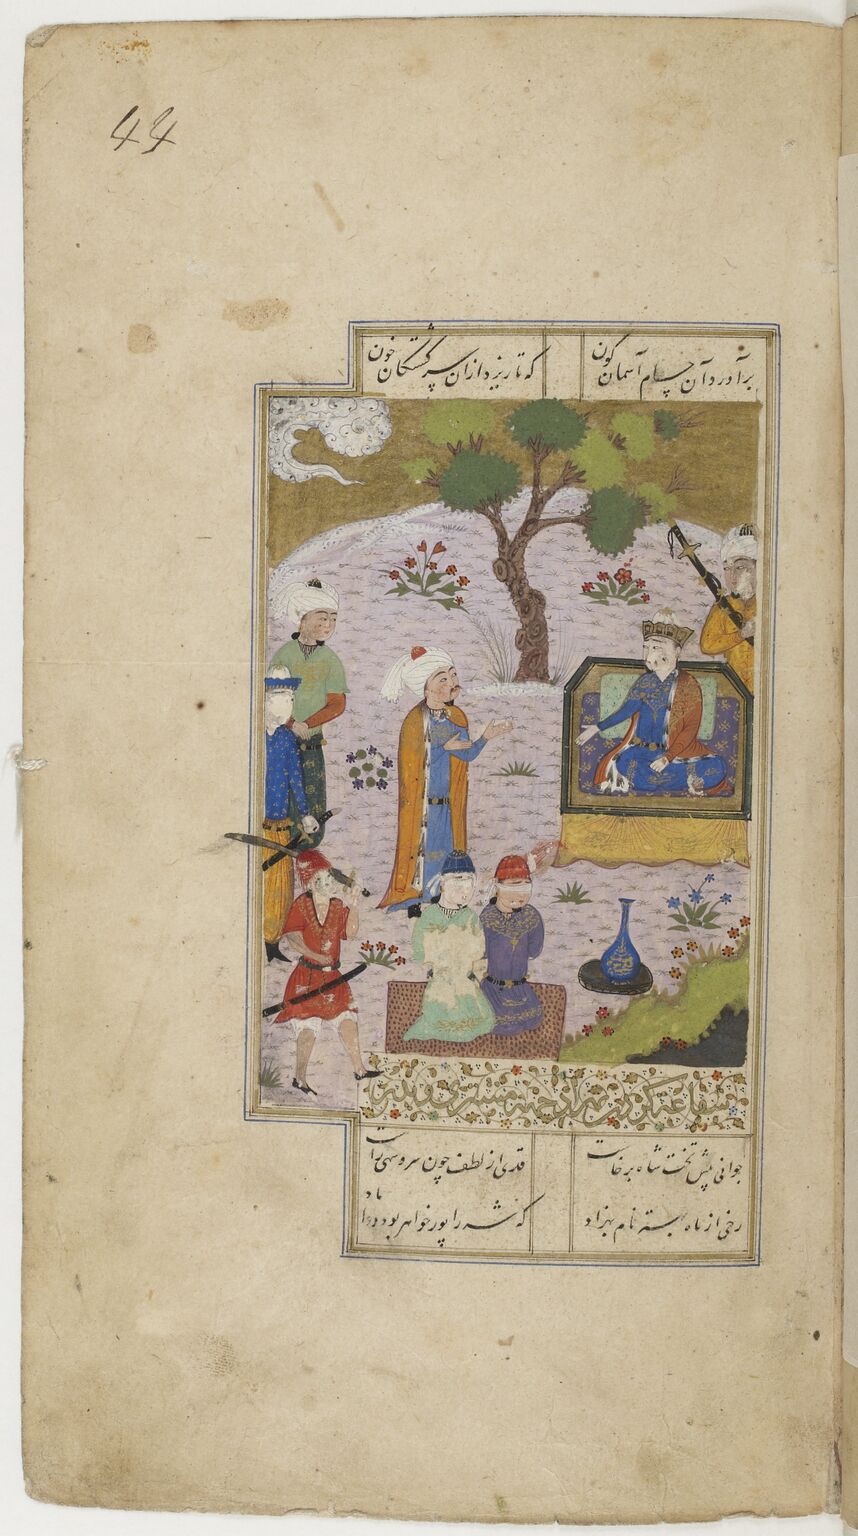 44
برآورد آن حسام آسمان گون
که تا ریزد ازان سرگشتگان خون
شفاعت کردن بهزاد جهة مشتری و بدر
جوانی پیش تخت شاه برخاست
قدی از لطف چون سرو سهی راست
رخی از ماه نام بهزاد
که شه را پور خواهر بود و داماد